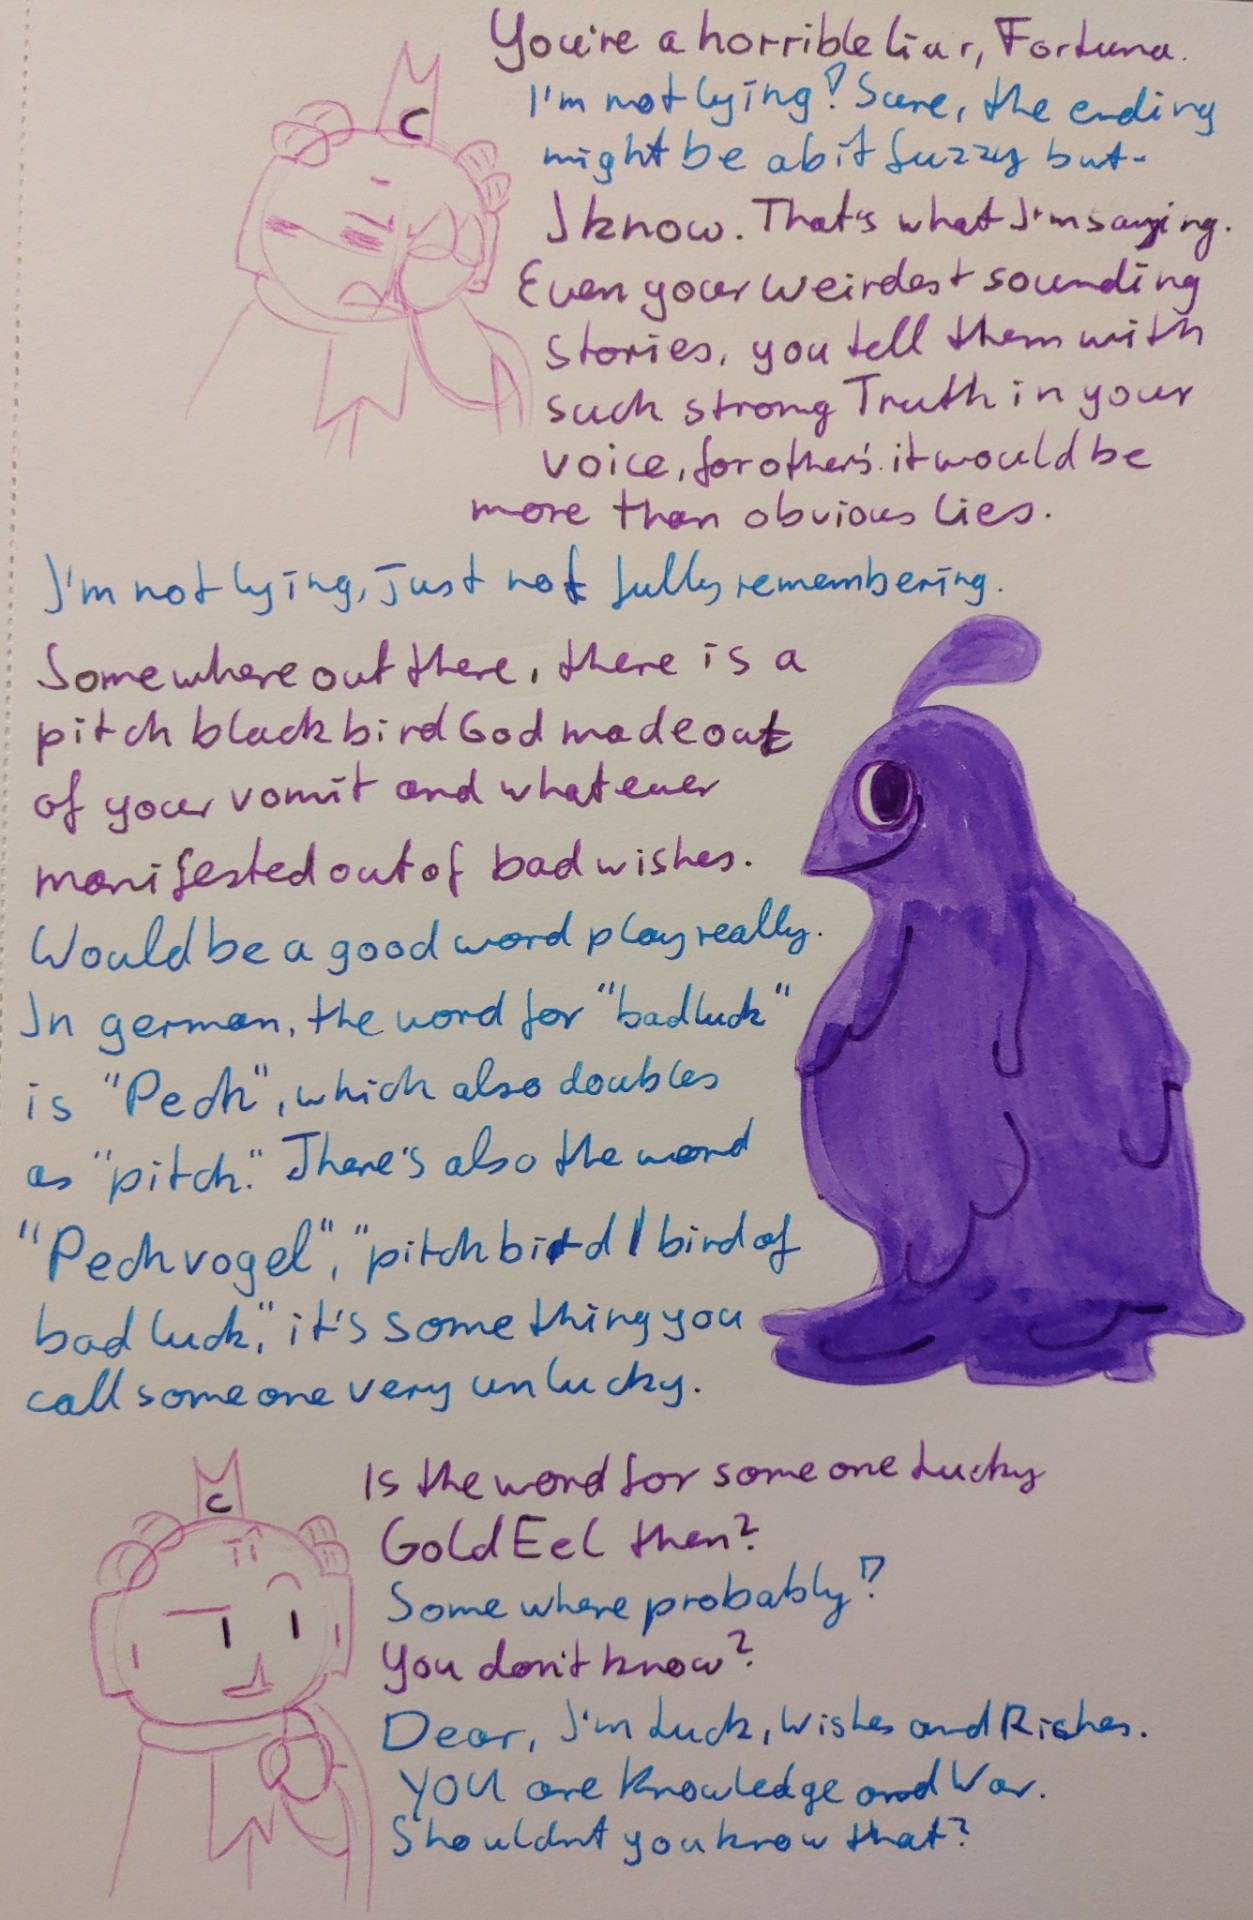 You're a horrible liar, Fortuna.
I'm not lying! Sure, the ending
might be a bit fuzzy but-
I know. That's what I'm saying.
Even your weirdest sounding
stories, you tell them with
such strong Truth in your
voice, for others it would be
more than obvious lies.
C
I'm not lying, just not fully remembering.
Somewhere out there, there is a
pitch black bird God made out
of your vomit and whatever
manifested out of bad wishes.
Would be a good word play really.
In german, the word for "bad luck"
is "Pech", which also doubles
as "pitch." There's also the word
"Pechvogel", "pitch bird / bird of
bad luck", it's something you
call someone very unlucky.
C
Is the word for someone Lucky
Gold Eel then?
Somewhere probably?
You don't know?
Dear, I'm Luck, Wishes and Riches.
YOU are Knowledge and War.
Shouldnt you know that?